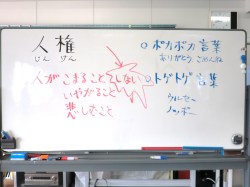 人権
じんけん
人がこまることをしない
いやがること
悲しむこと
○ポカポカ言葉
ありがとう、ごめんね
○トゲトゲ言葉
うるせー